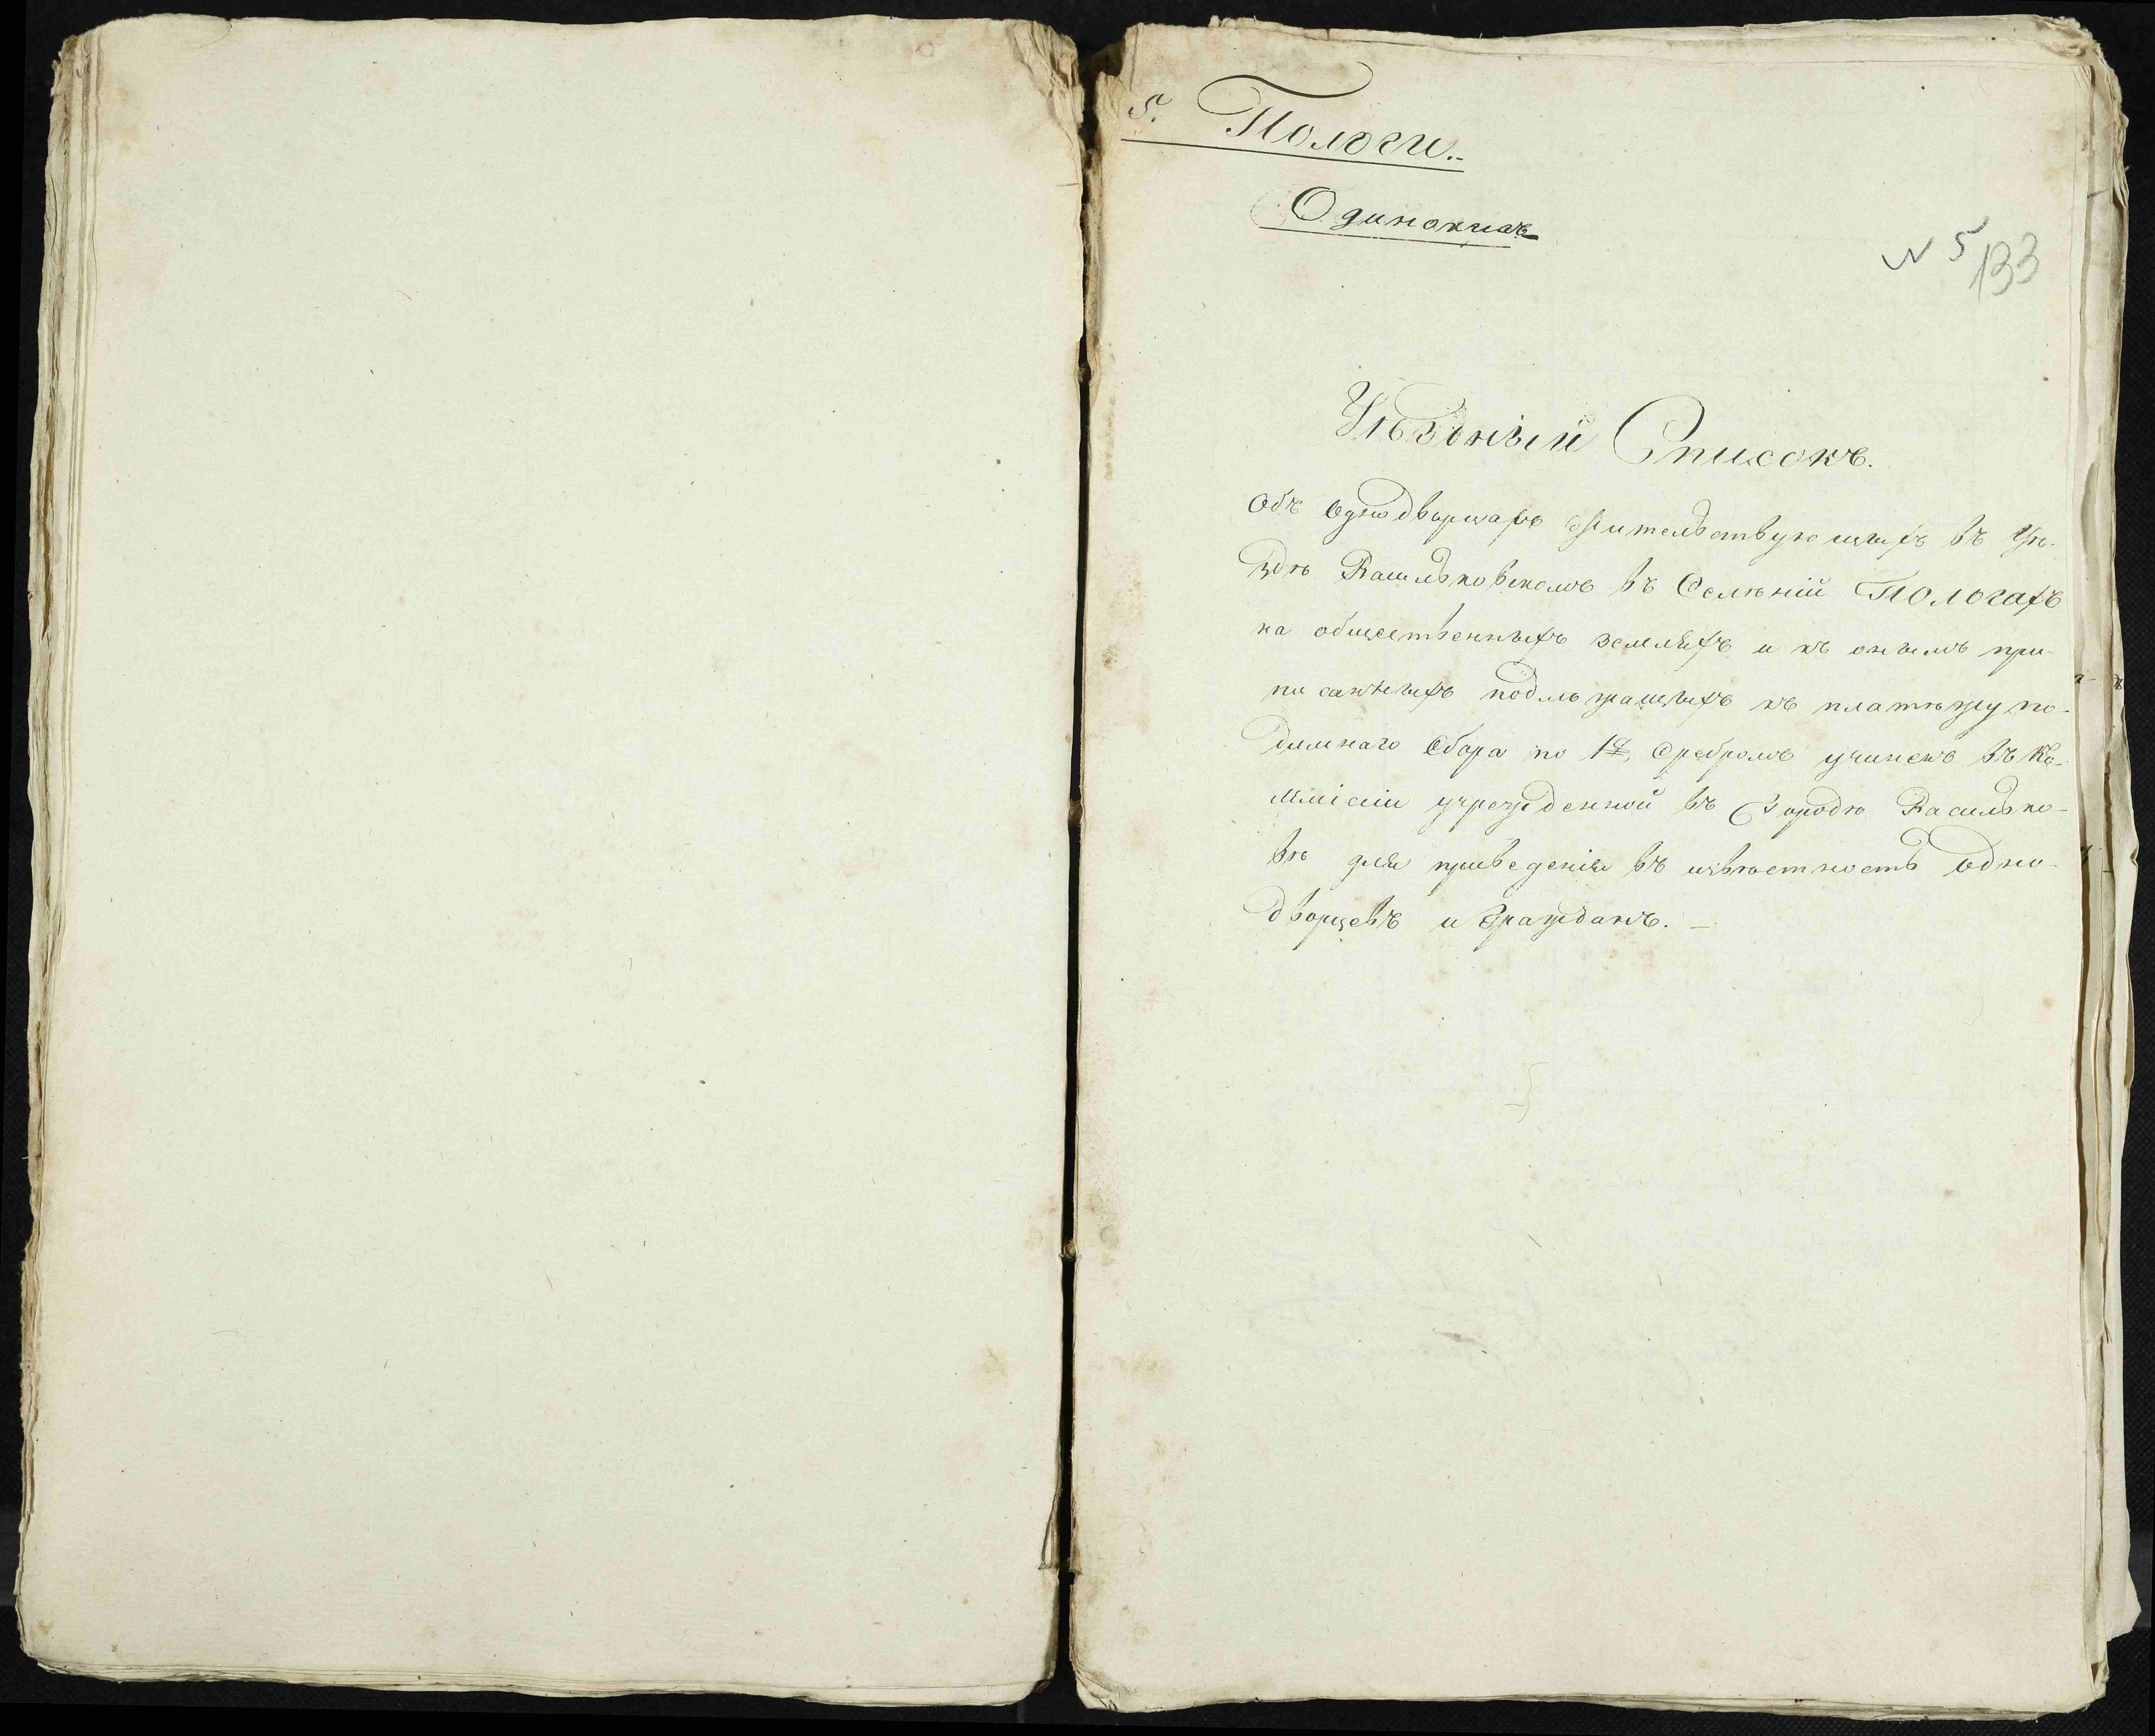 5. Пологи.
Одинакихъ
N 5
133
Уѣздный Списокъ.
Объ Однодворцахъ жительствующихъ въ Уѣ-
здѣ Васильковскомъ въ Селѣніи Пологахъ
на общественныхъ земляхъ и къ онымъ при-
писанныхъ подлѣжащихъ къ платѣжу по-
дымнаго Сбора по Сребромъ учиненъ въ Ко-
ммісіи учрежденной въ Городѣ Василько-
вѣ для приведенія въ извѣстность одно-
дворцевъ и Гражданъ. —